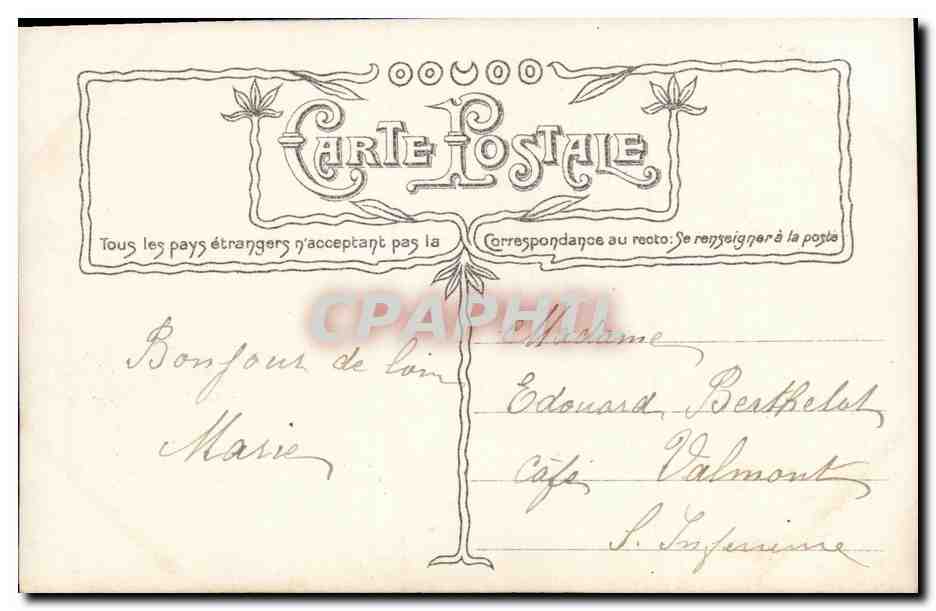 CARTE POSTALE
Tous les pays étrangers n'acceptant pas la Correspondance au recto: Se renseigner à la poste
CPAPHIL
Bonjour de loin
Marie
Madame
Edouard Berthelot
Café Valmont
S. Inferieure